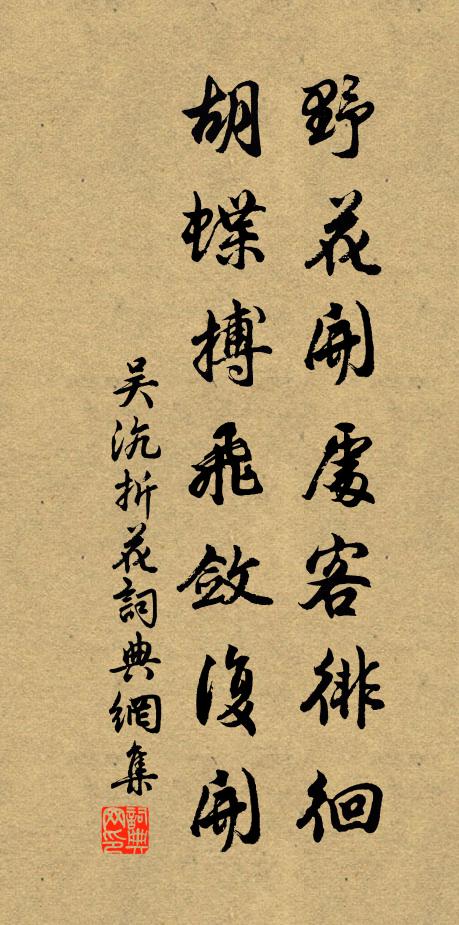 野花開處客徘徊
胡蝶搏飛斂復開
吴沆折花詞典網集
詞典网印